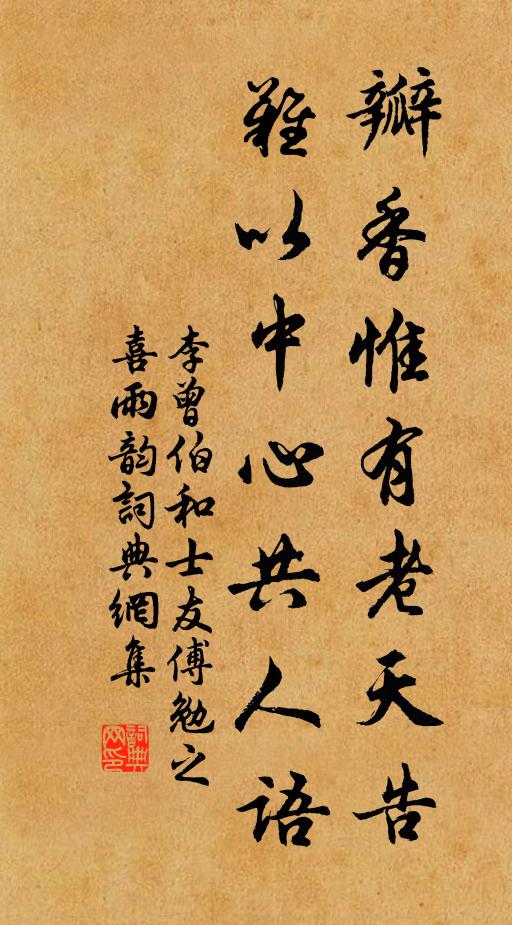 瓣香惟有老天告
難以中心共人語
李曾伯和士友傅勉之
喜雨韵詞典網集
詞典網印